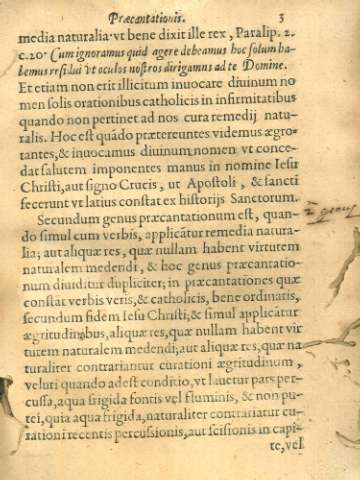 Præcantationis. 3
media naturalia vt bene dixit ille rex, Paralip. 2.
c.20. Cum ignoramus quid agere debeamus hoc solum ha-
bemus residui vt oculos nostros dirigamus ad te Domine.
Et etiam non erit illicitum inuocare diuinum no
men solis orationibus catholicis in infirmitatibus
quando non pertinet ad nos cura remedij natu-
ralis. Hoc est quádo prætereuntes videmus ægro-
tantes, & inuocamus diuinum nomen vt conce-
dat salutem imponentes manus in nomine Iesu
Christi, aut signo Crucis, vt Apostoli, & sancti
fecerunt vt latius constat ex historijs Sanctorum.
Secundum genus præcantationum est, quan-
do simul cum verbis, applicãtur remedia natura-
lia; aut aliquæ res, quæ nullam habent virtutem
naturalem medendi, & hoc genus præcantatio-
num diuiditur dupliciter; in præcantationes quæ
constãt verbis veris, & catholicis, bene ordinatis,
secundum fidem Iesu Christi; & simul applicãtur
ægritudinibus, aliquæ res, quæ nullam habent vir
tutem naturalem medendi; aut aliquæ res, quæ na
turaliter contrariantur curationi ægritudinum,
veluti quando adest conditio, vt lauetur pars per-
cussa, aqua frigida fontis vel fluminis, & non pu-
tei, quia aqua frigida, naturaliter contrariatur cu-
rationi recentis percussionis, aut scisionis in capi-
te, vel
2 genus